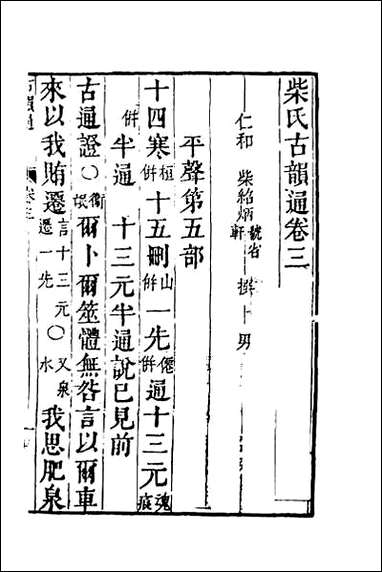 柴氏古韻通卷三
仁和 柴紹炳 號省軒 撰 男
平聲第五部
十四寒桓併十五刪山併一先僊併通十三元魂痕
併半通 十三元半通說已見前
古通證〇衛氓爾卜爾筮體無咎言以爾車
來以我賄遷言十三元遷一先〇又泉水我思肥泉